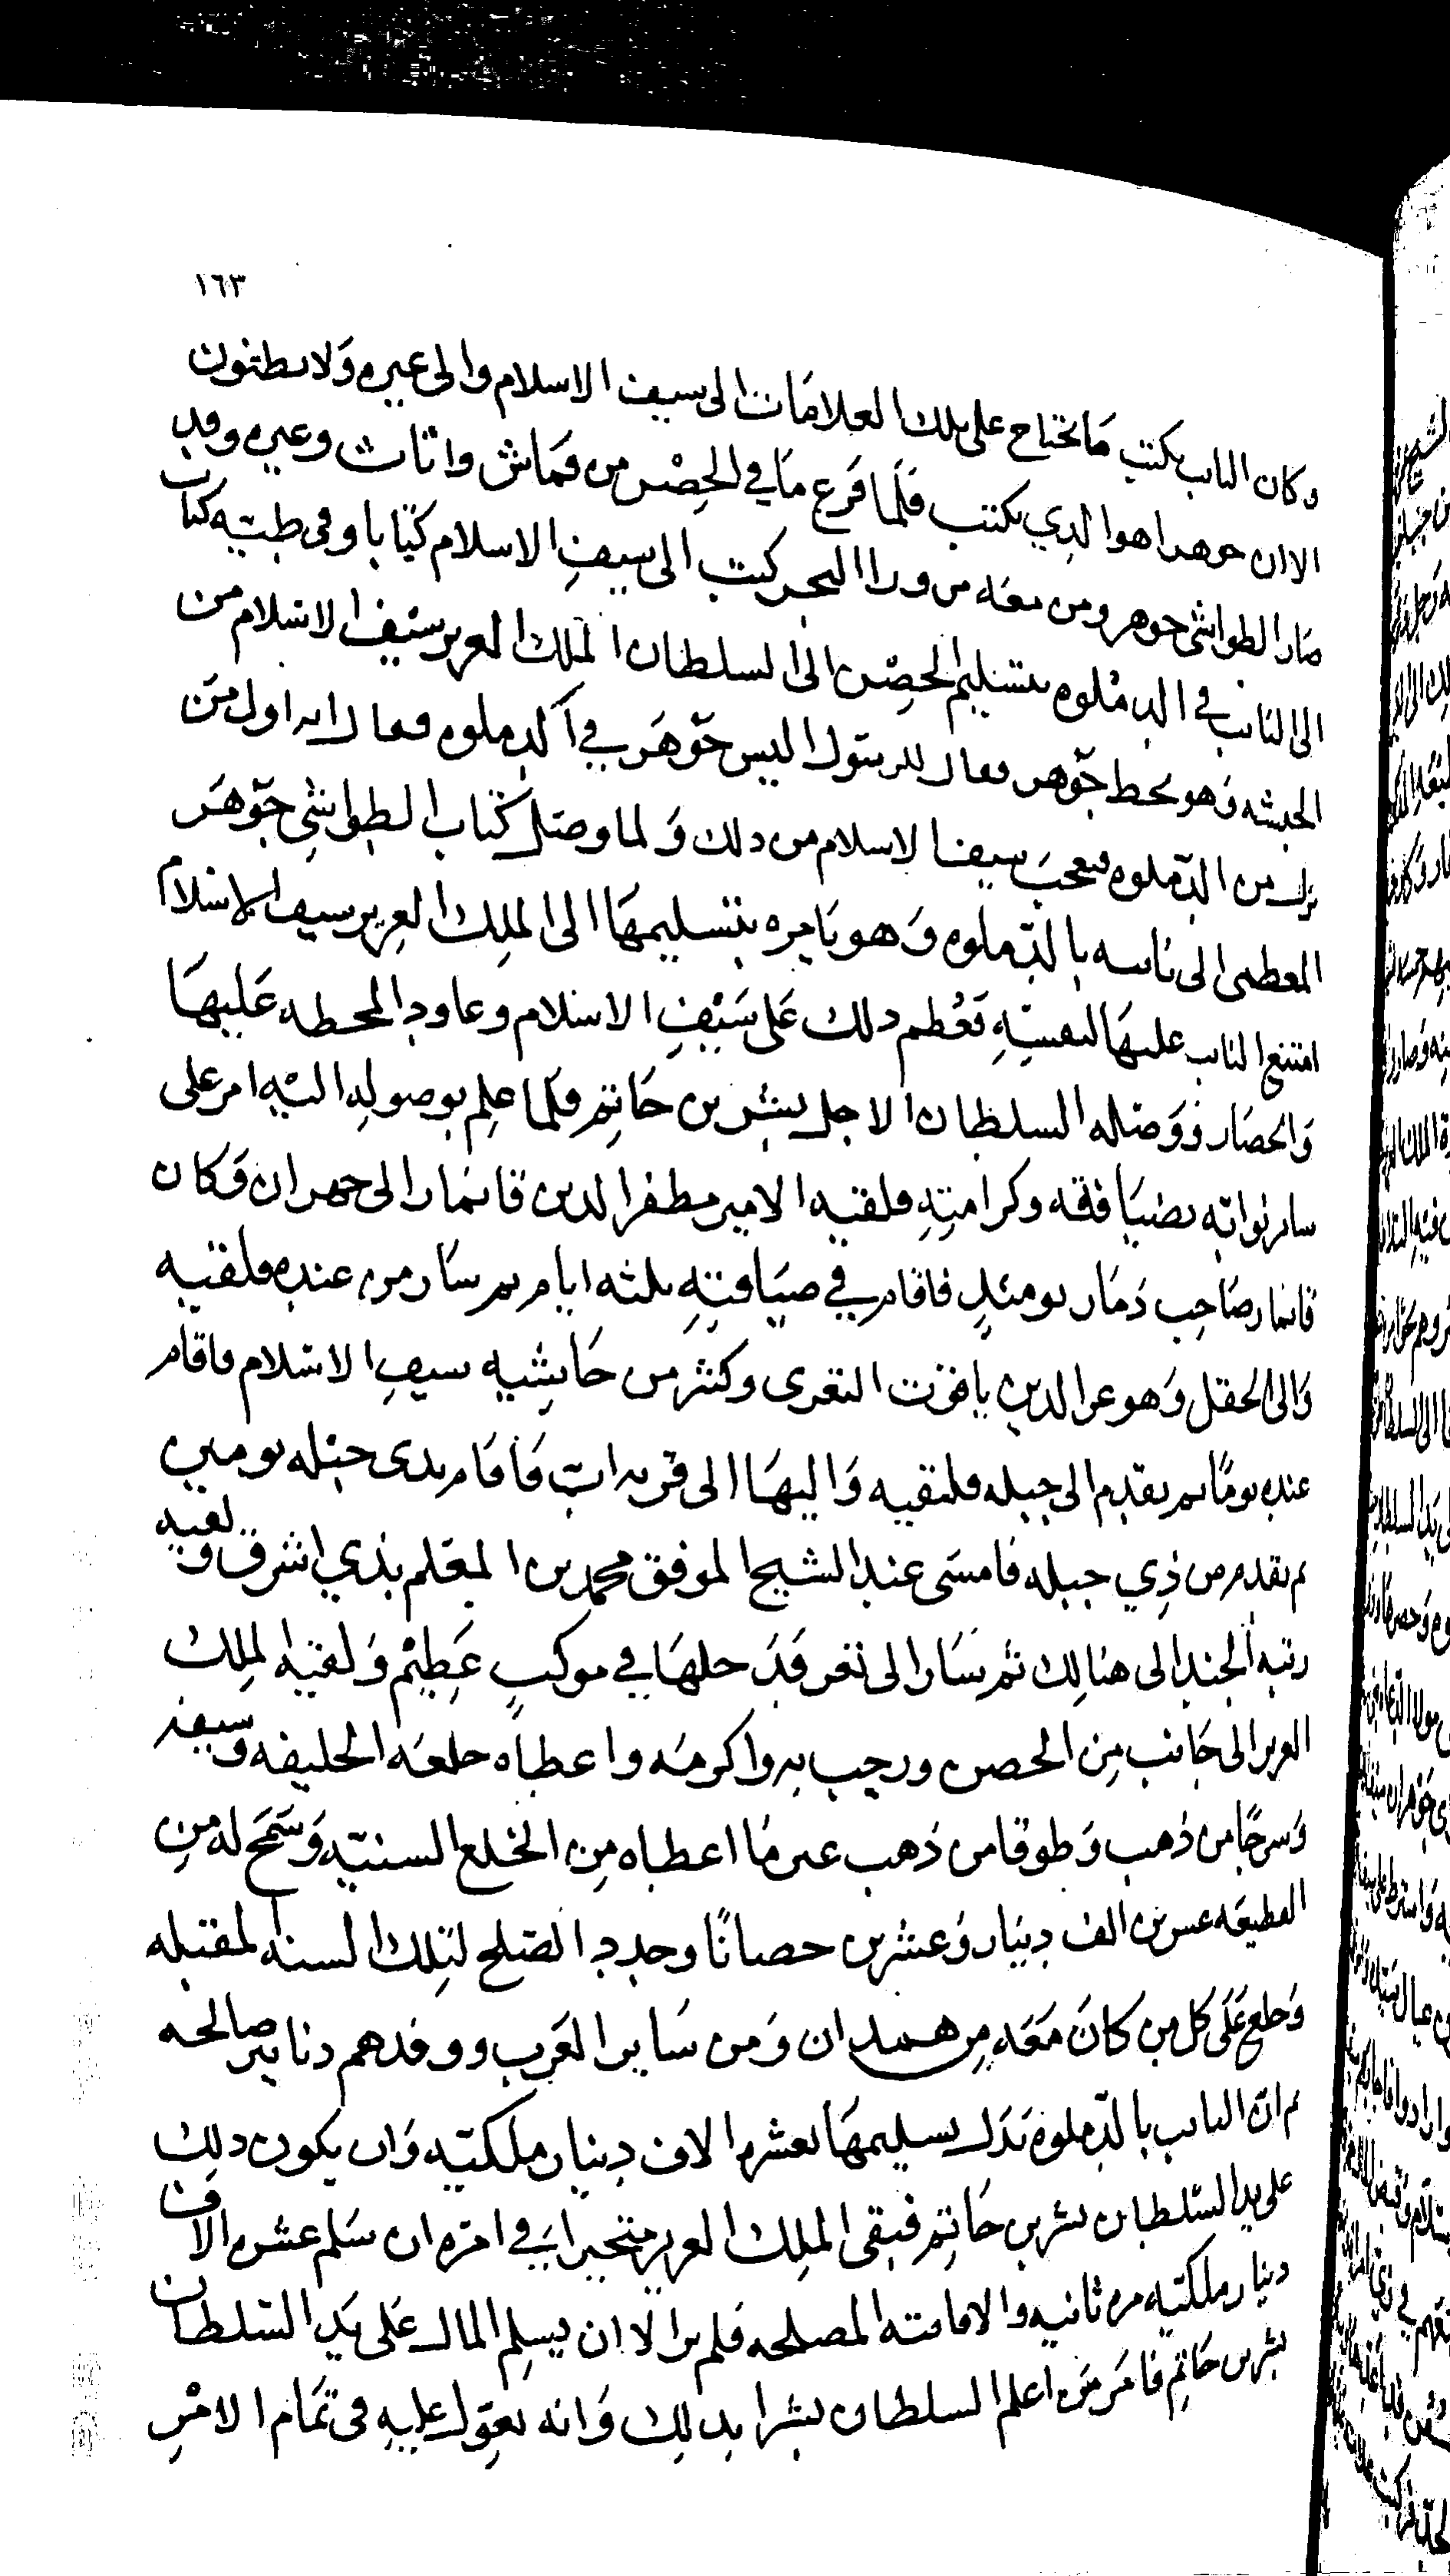 ١٦٣
وكان النايب يكتب ما يحتاج على تلك العلامات الى سيف الاسلام والى غيره ولا يظنون
الا ان جوهرا هو الذي يكتب فلما فرغ ما في الحصن من قماش واثاث وغيره وقد
صار الطواشي جوهر ومن معه من ورا البحر كتب الى سيف الاسلام كتابا وفي طيه كتاب
الى النايب في الدملوه بتسليم الحصن الى السلطان الملك العزيز سيف الاسلام من
الحبشه وهو بخط جوهر فقال للرسول اليس جوهر في الدملوه فقال انه اول من
نزل من الدملوه فتعجب سيف الاسلام من ذلك ولما وصل كتاب الطواشي جوهر
المعظمي الى نايبه بالدملوه وهو يامره بتسليمها الى الملك العزيز سيف الاسلام
امتنع النايب عليها لنفسه فعظم ذلك على سيف الاسلام وعاود المحطه عليها
والحصار ووصله السلطان الاجل بشر بن حاتم فلما علم بوصوله اليه امر على
ساير نوابه بضيافته وكرامته فلقيه الامير مظفر الدين قايماز الى جهران وكان
قايماز صاحب ذمار يومئذ فاقام في ضيافته ثلثه ايام ثم سار من عنده فلقيه
والى الحقل وهو عز الدين ياقوت التعزى وكثر من حاشيه سيف الاسلام فاقام
عنده يوما ثم تقدم الى جبله فلقيه واليها الى قريه اب فاقام بذى جبله يومين
ثم تقدم من ذي جبله فامسى عند الشيخ الموفق محمد بن المعلم بذي اشرق ولقيه
رتبه الجند الى هنالك ثم سار الى تعز فدخلها في موكب عظيم ولقيه الملك
العزيز الى جانب من الحصن ورحب به واكرمه واعطاه خلعه الخليفه وسيفه
وسرجا من ذهب وطوقا من ذهب غير ما اعطاه من الخلع السنيه وسمح له من
القطيعه عشرين الف دينار وعشرين حصانا وجدد الصلح لتلك السنه المقبله
وخلع على كل من كان معه من همدان ومن ساير العرب ووفدهم دنانير صالحه
ثم ان النايب بالدملوه بذل تسليمها بعشره الاف دينار ملكيه وان يكون ذلك
على يد السلطان بشر بن حاتم فبقى الملك العزيز متحيرا في امره ان سلم عشره الاف
دينار ملكيه مره ثانيه والا فاتته المصلحه فلم ير الا ان يسلم المال على يد السلطان
بشر بن حاتم فامر من اعلم السلطان بشرا بذلك وانه يعول عليه في تمام الامر